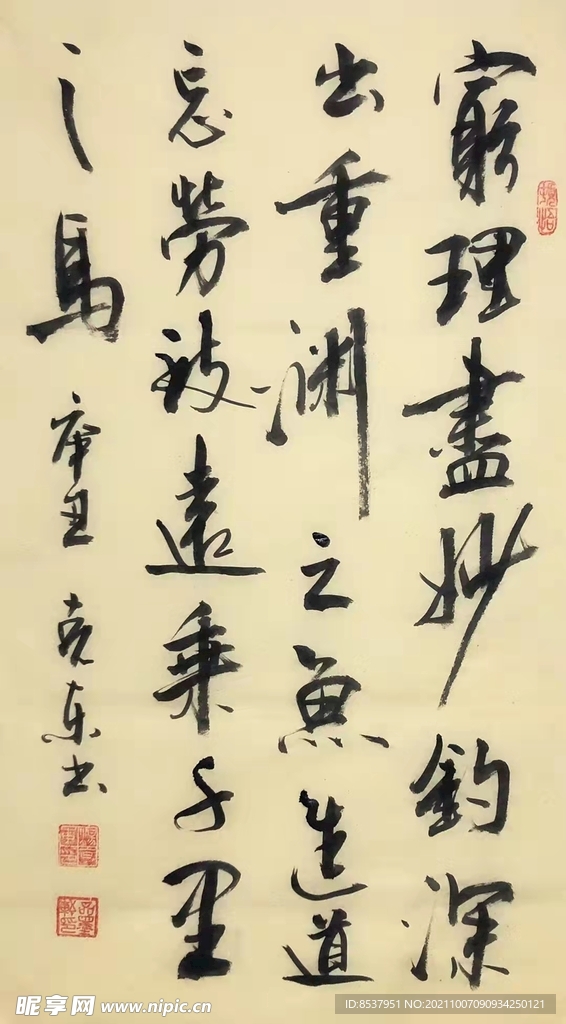 窮理盡妙釣深
出重淵之魚造道
忘勞致遠乘千里
之馬 丑 克东书
昵享网 www.nipic.cn
ID:8537951 NO:20211007090934250121